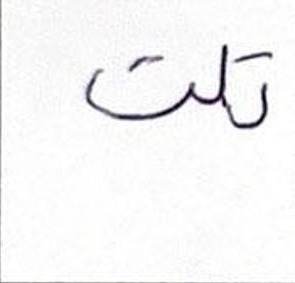 تلت